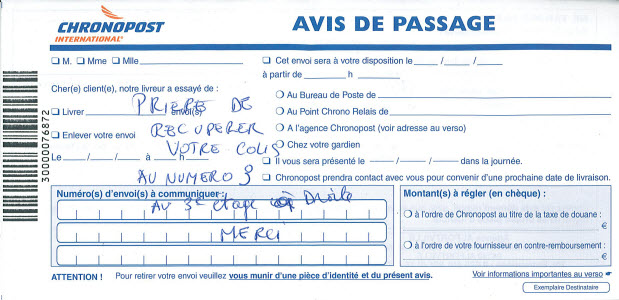 CHRONOPOST
INTERNATIONAL
AVIS DE PASSAGE
M. Mme Mlle
Cher(e) client(e), notre livreur a essayé de :
Livrer envoi(s)
Enlever votre envoi
Le / / à h
PRIERE DE
RECUPERER
VOTRE COLIS
AU NUMERO 9
Numéro(s) d'envoi(s) à communiquer :
Au 3e etage à Droite
MERCI
Cet envoi sera à votre disposition le / /
à partir de h
Au Bureau de Poste de
Au Point Chrono Relais de
A l'agence Chronopost (voir adresse au verso)
Chez votre gardien
Il vous sera présenté le / / dans la journée.
Chronopost prendra contact avec vous pour convenir d'une prochaine date de livraison.
Montant(s) à régler (en chèque) :
à l'ordre de Chronopost au titre de la taxe de douane :
€
à l'ordre de votre fournisseur en contre-remboursement :
€
ATTENTION ! Pour retirer votre envoi veuillez vous munir d'une pièce d'identité et du présent avis.
Voir informations importantes au verso
Exemplaire Destinataire
30000076872